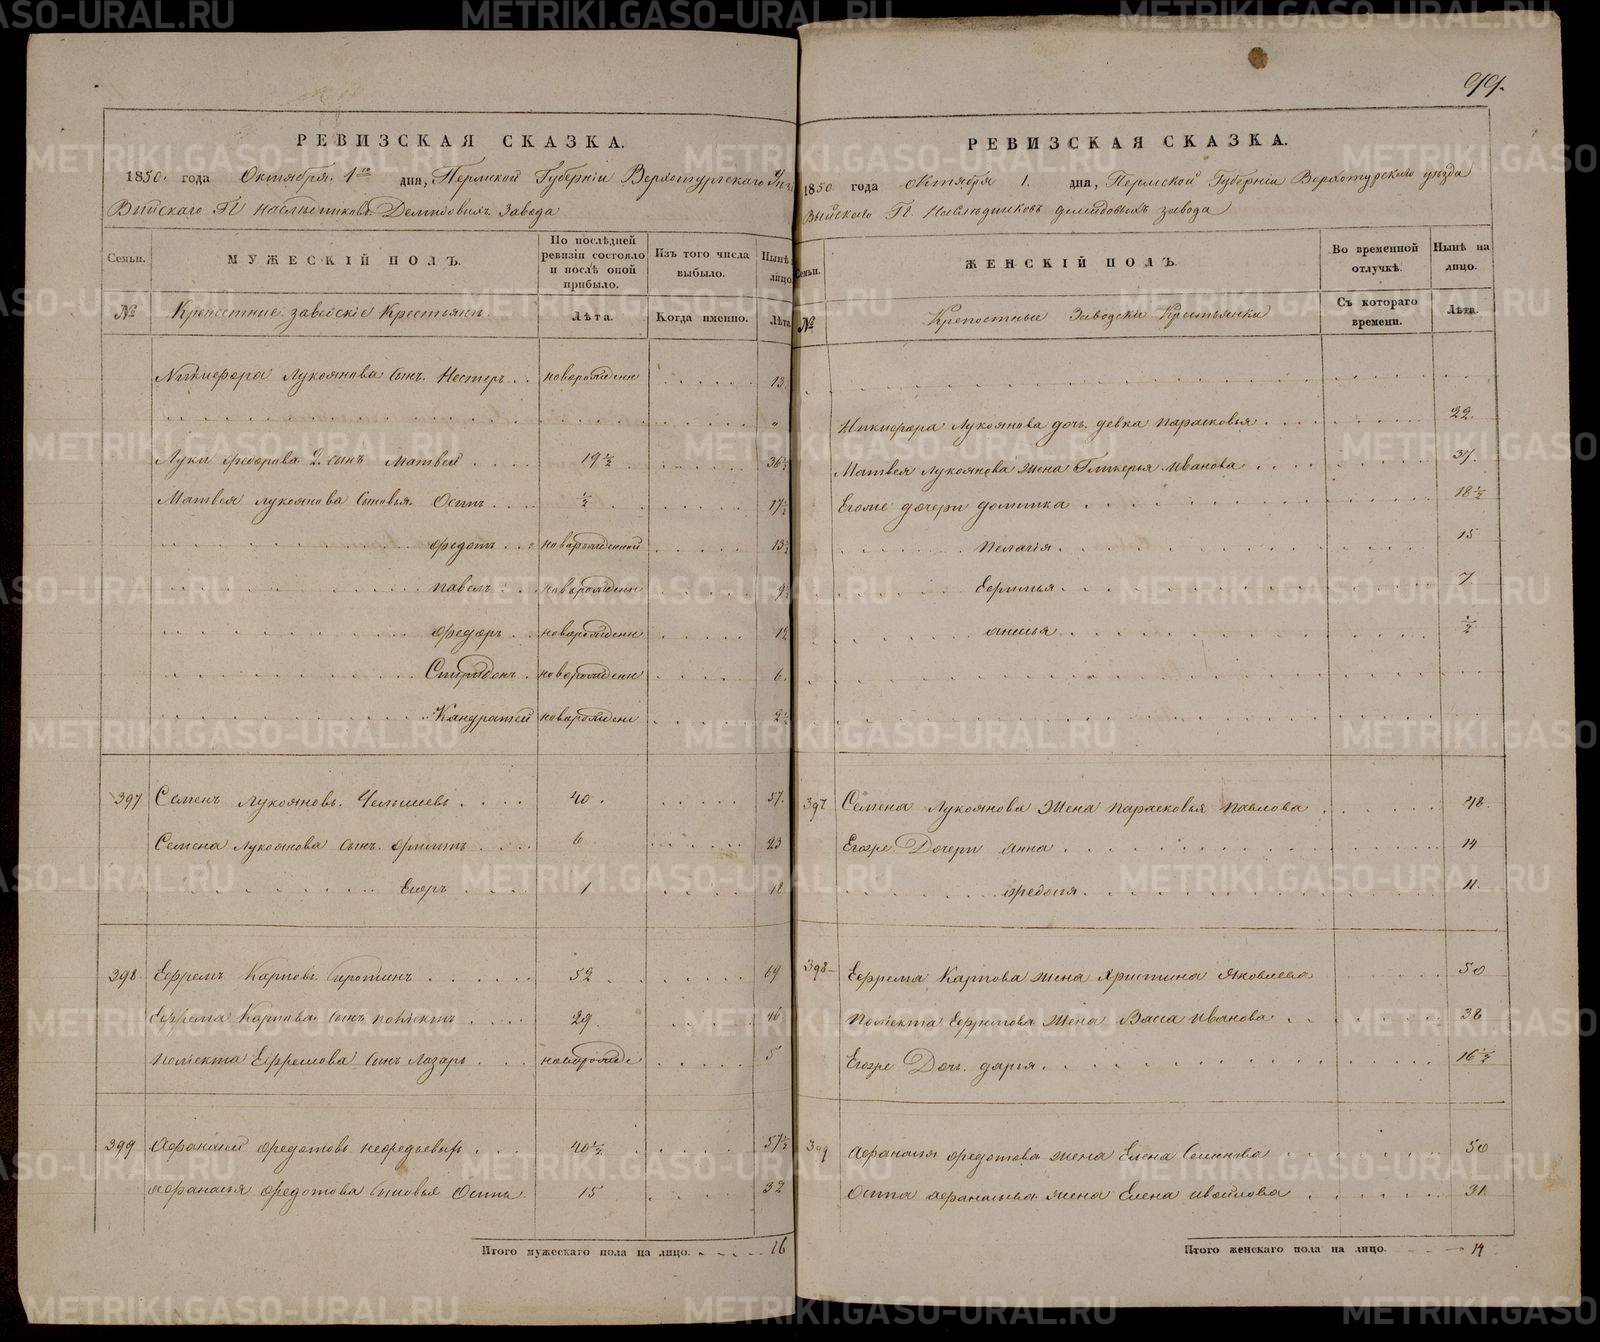 99.
РЕВИЗСКАЯ СКАЗКА.
1850 года Октября 1го дня, Пермской Губерніи Верхотурскаго
Выйскаго Гг Наслѣдниковъ Демидовыхъ Завода
Семьи.
МУЖЕСКІЙ ПОЛЪ.
По послѣдней ревизіи состояло и послѣ оной прибыло.
Изъ того числа выбыло.
Нынѣ лицо
№
Крепостные заводскіе Крестьяне
Лѣта.
Когда именно.
Лѣта
Никифора Лукоянова сынъ Нестеръ новорожден 13
Луки Федорова 2 сынъ Матвей 19½ 36½
Матвея Лукоянова сыновья Осипъ ½ 17½
Федотъ новорожденной 13½
Павелъ новорожденн 9½
Федоръ новорожденн 12
Спиридонъ новорожденн 6
Кандратей новорожден 2½
397 Семенъ Лукояновъ Челышевъ 40 57
Семена Лукоянова сынъ Филипъ 6 23
Егоръ 1 18
398 Ефремъ Карповъ 52 69
Ефрема Карпова сынъ Полиектъ 29 46
Полиекта Ефремова сынъ Лазарь новорожде 5
399 Афанасий Федотовъ 40½ 57½
Афанасия Федотова сыновья Осипъ 15 32
Итого мужескаго пола на лицо. 16
РЕВИЗСКАЯ СКАЗКА.
1850 года октября 1 дня, Пермской Губерніи Верхотурскаго уезда
Выйскаго Гг Наследниковъ Демидовыхъ завода
Семьи.
ЖЕНСКІЙ ПОЛЪ
Во временной отлучкѣ.
Нынѣ на лицо.
№
Крепостные Заводски Крестьянки
Съ котораго времени.
Лѣта.
Никифора Лукоянова дочь девка Парасковья 22
Матвея Лукоянова жена Гликерья Иванова 37
Егоже дочери Домника 18½
Пелагія 15
Ефимья 7
Анисья ½
397 Семена Лукоянова Жена Парасковья Павлова 48
Егоже Дочери Анна 14
Федосія 11
398 Ефрема Карпова жена Христина Яковлева 50
Полиекта Ефремова Жена Васа Иванова 38
Егоже Дочь Дарья 16½
399 Афанасия Федотова жена Елена Семенова 50
Осипа Афанасьева жена Елена 31
Итого женскаго пола на лицо. 14
METRIKI.GASO-URAL.RU